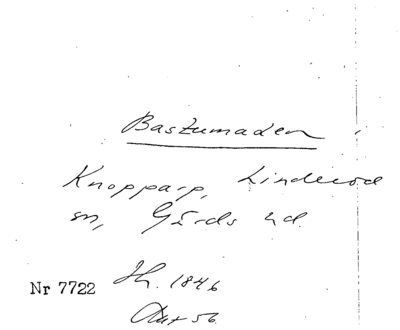 Bastumaden
Knopparp, Linderöd
sn, Gärds hd.
Nr 7722 Sh. 1846
Akt 56.